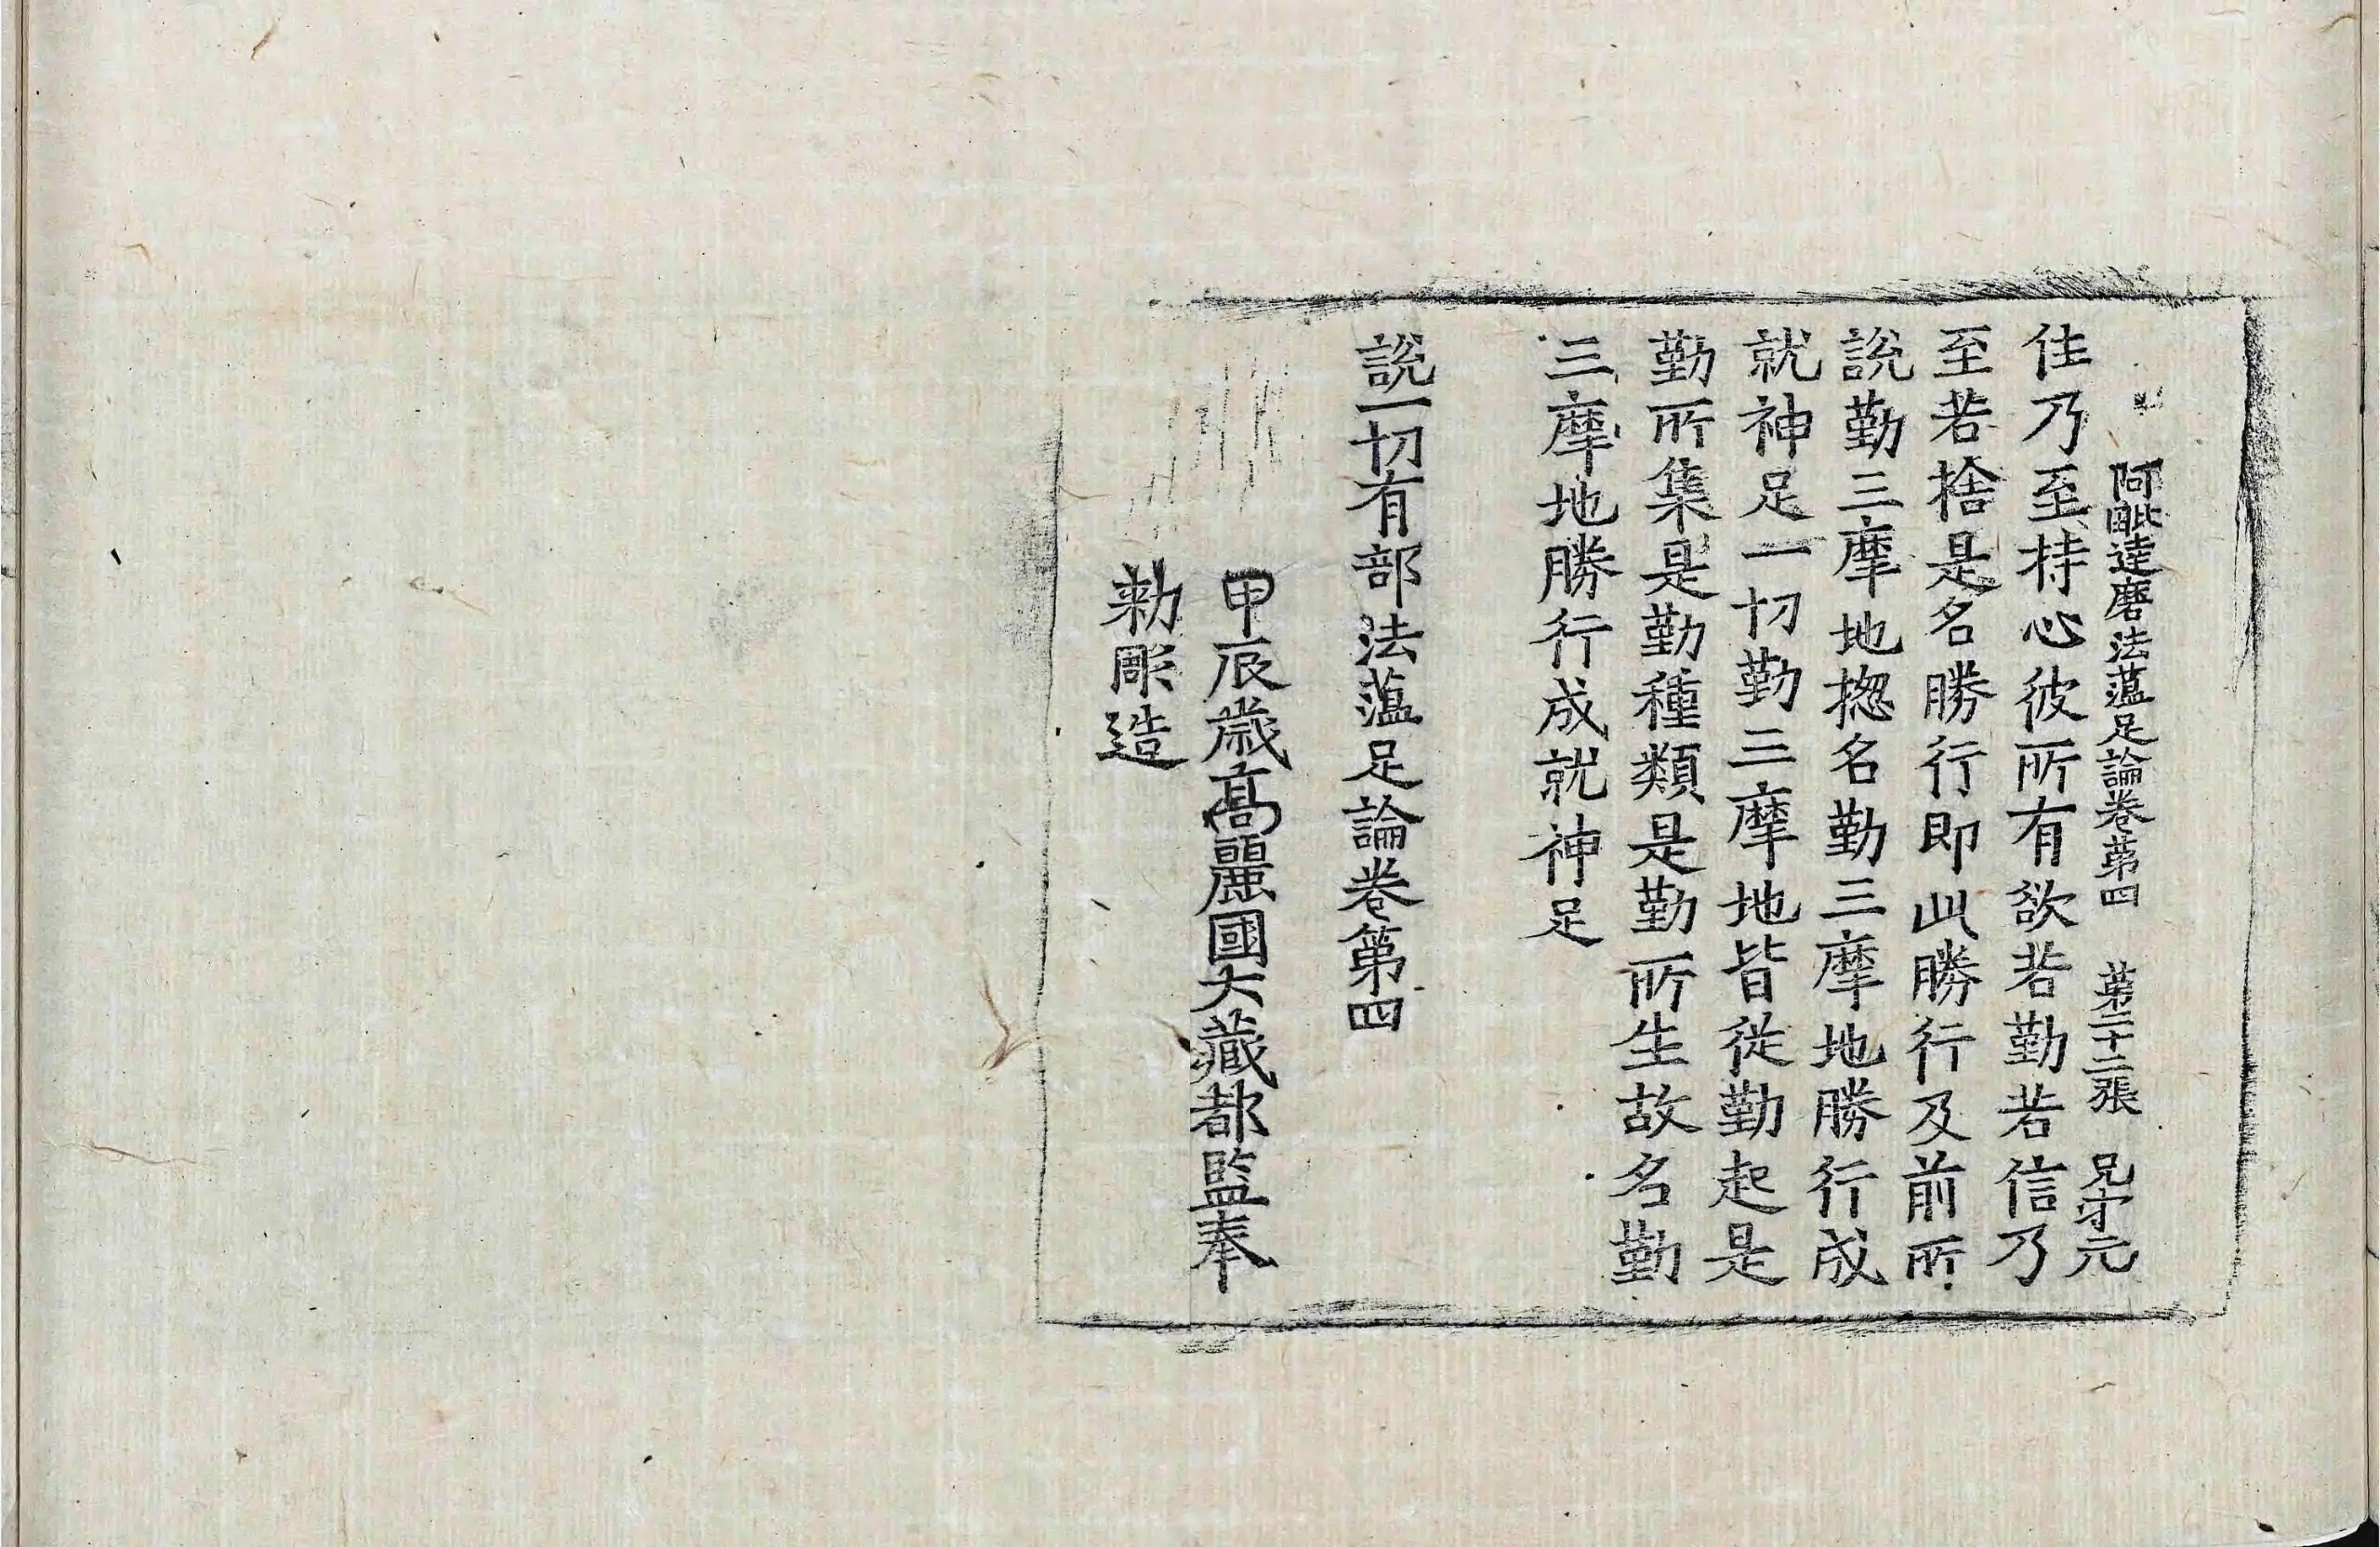 阿毗達磨法蘊足論卷第四 第二十二張 兄 守元
住乃至持心彼所有欲若勤若信乃
至若捨是名勝行即此勝行及前所
說勤三摩地揔名勤三摩地勝行成
就神足一切勤三摩地皆從勤起是
勤所集是勤種類是勤所生故名勤
三摩地勝行成就神足
說一切有部法蘊足論卷第四
甲辰歲高麗國大藏都監奉
勅彫造